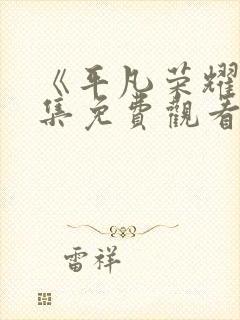 《平凡荣耀
集免費觀看
雷祥